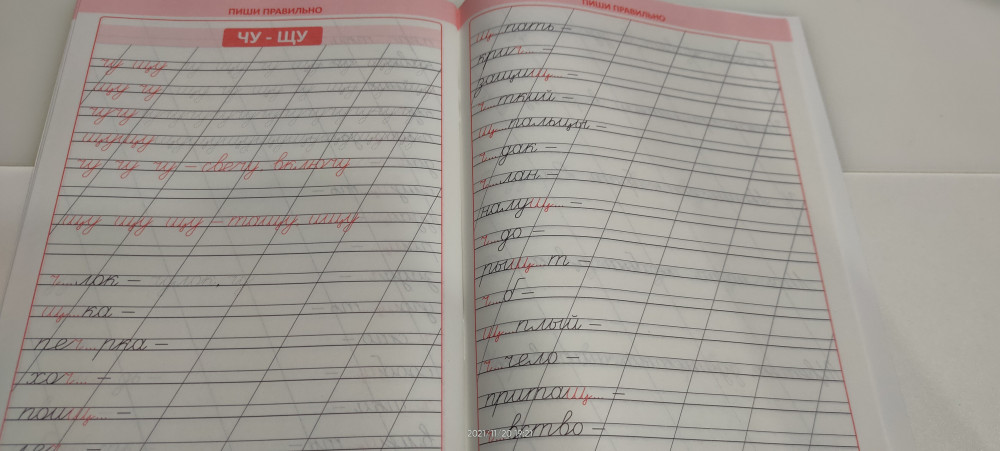 ПИШИ ПРАВИЛЬНО
ЧУ - ЩУ
чу щу
щу чу
чучу
щущу
чу чу чу – свечу включу
щу щу щу – тащу ищу
ч...лок –
щ...ка –
печ...рка –
хоч... –
поищ... –
ПИШИ ПРАВИЛЬНО
щ...пать –
крич... –
защищ... –
ч...ткий –
щ...пальцы –
ч...дак –
ч...лан –
налущ... –
ч...до –
рыщ...т –
ч...б –
щ...плый –
ч...чело –
притащ... –
ч...вство –
2021/11/20 19:21